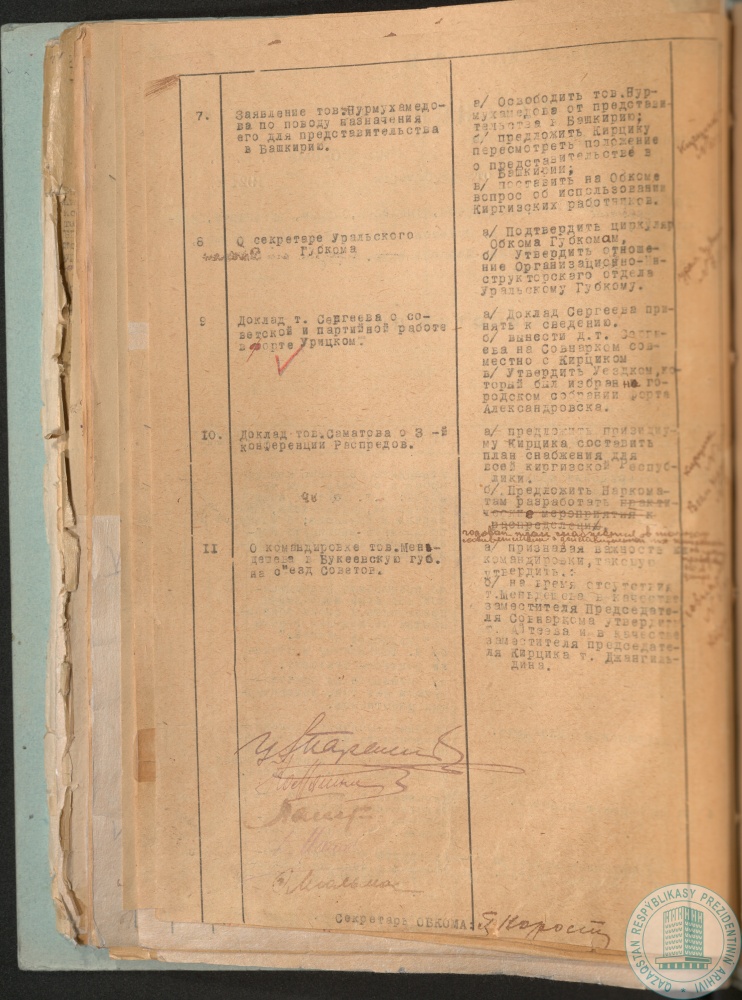 7.
Заявление тов.Нурмухамедо-
ва по поводу назначения
его для представительства
в Башкирию.
а/ Освободить тов.Нур-
мухамедова от представи-
тельства в Башкирию;
б/ предложить Кирцику
пересмотреть положение
о представительстве в
Башкирии;
в/ поставить на Обкоме
вопрос об использовании
Киргизских работников.
8
О секретаре Уральского
Губкома
а/ Подтвердить циркуляр
Обкома Губкомам,
б/ Утвердить отноше-
ние Организационно-Ин-
структорского отдела
Уральскому Губкому.
9
Доклад т. Сергеева о со-
ветской и партийной работе
в форте Урицком.
а/ Доклад Сергеева при-
нять к сведению.
б/ вынести д.т. Серге-
ева на Совнарком сов-
местно с Кирциком
в/ Утвердить Уездком,ко-
торый был избран на го-
родском собрании форта
Александровска.
10.
Доклад тов.Саматова о 3 -й
конференции Распредов.
а/ предложить президиу-
му Кирцика составить
план снабжения для
всей киргизской Респуб-
лики.
б/ Предложить Наркома-
там разработать практи-
ческие мероприятия к
распределению
годовой план снабжения
11
О командировке тов.Мень-
дешева в Букеевскую губ.
на с"езд Советов.
а/ признавая важность
командировки,таковую
утвердить.:
б/ на время отсутствия
т.Меньдешева в качестве
заместителя Председате-
ля Совнаркома утвердить
и в качестве
заместителя председате-
ля Кирцика т. Джангиль-
дина.
Секретарь ОБКОМА:
QAZAQSTAN RESPÝBLIKASY PREZIDENTINIŃ ARHIVI